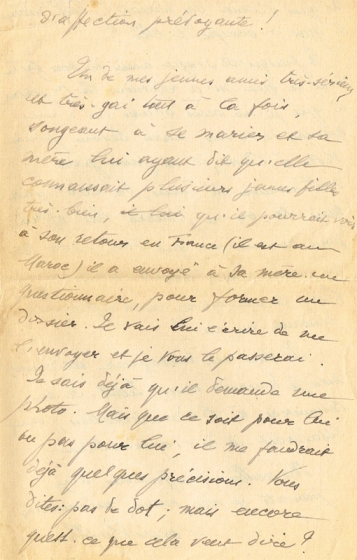 d'affection prévoyante !
Un de mes jeunes amis très-sérieux
et très-gai tout à la fois,
songeant à se marier et sa
mère lui ayant dit qu'elle
connaissait plusieurs jeunes filles
très-bien, qu'il pourrait voir
à son retour en France (il est au
Maroc) il a envoyé à sa mère un
questionnaire, pour former un
dossier. Je vais lui écrire de me
l'envoyer et je vous le passerai.
Je sais déjà qu'il demande une
photo. Mais que ce soit pour lui
ou pas pour lui, il me faudrait
déjà quelques précisions. Vous
dites : pas de dot ; mais encore
qu'est-ce que cela veut dire ?